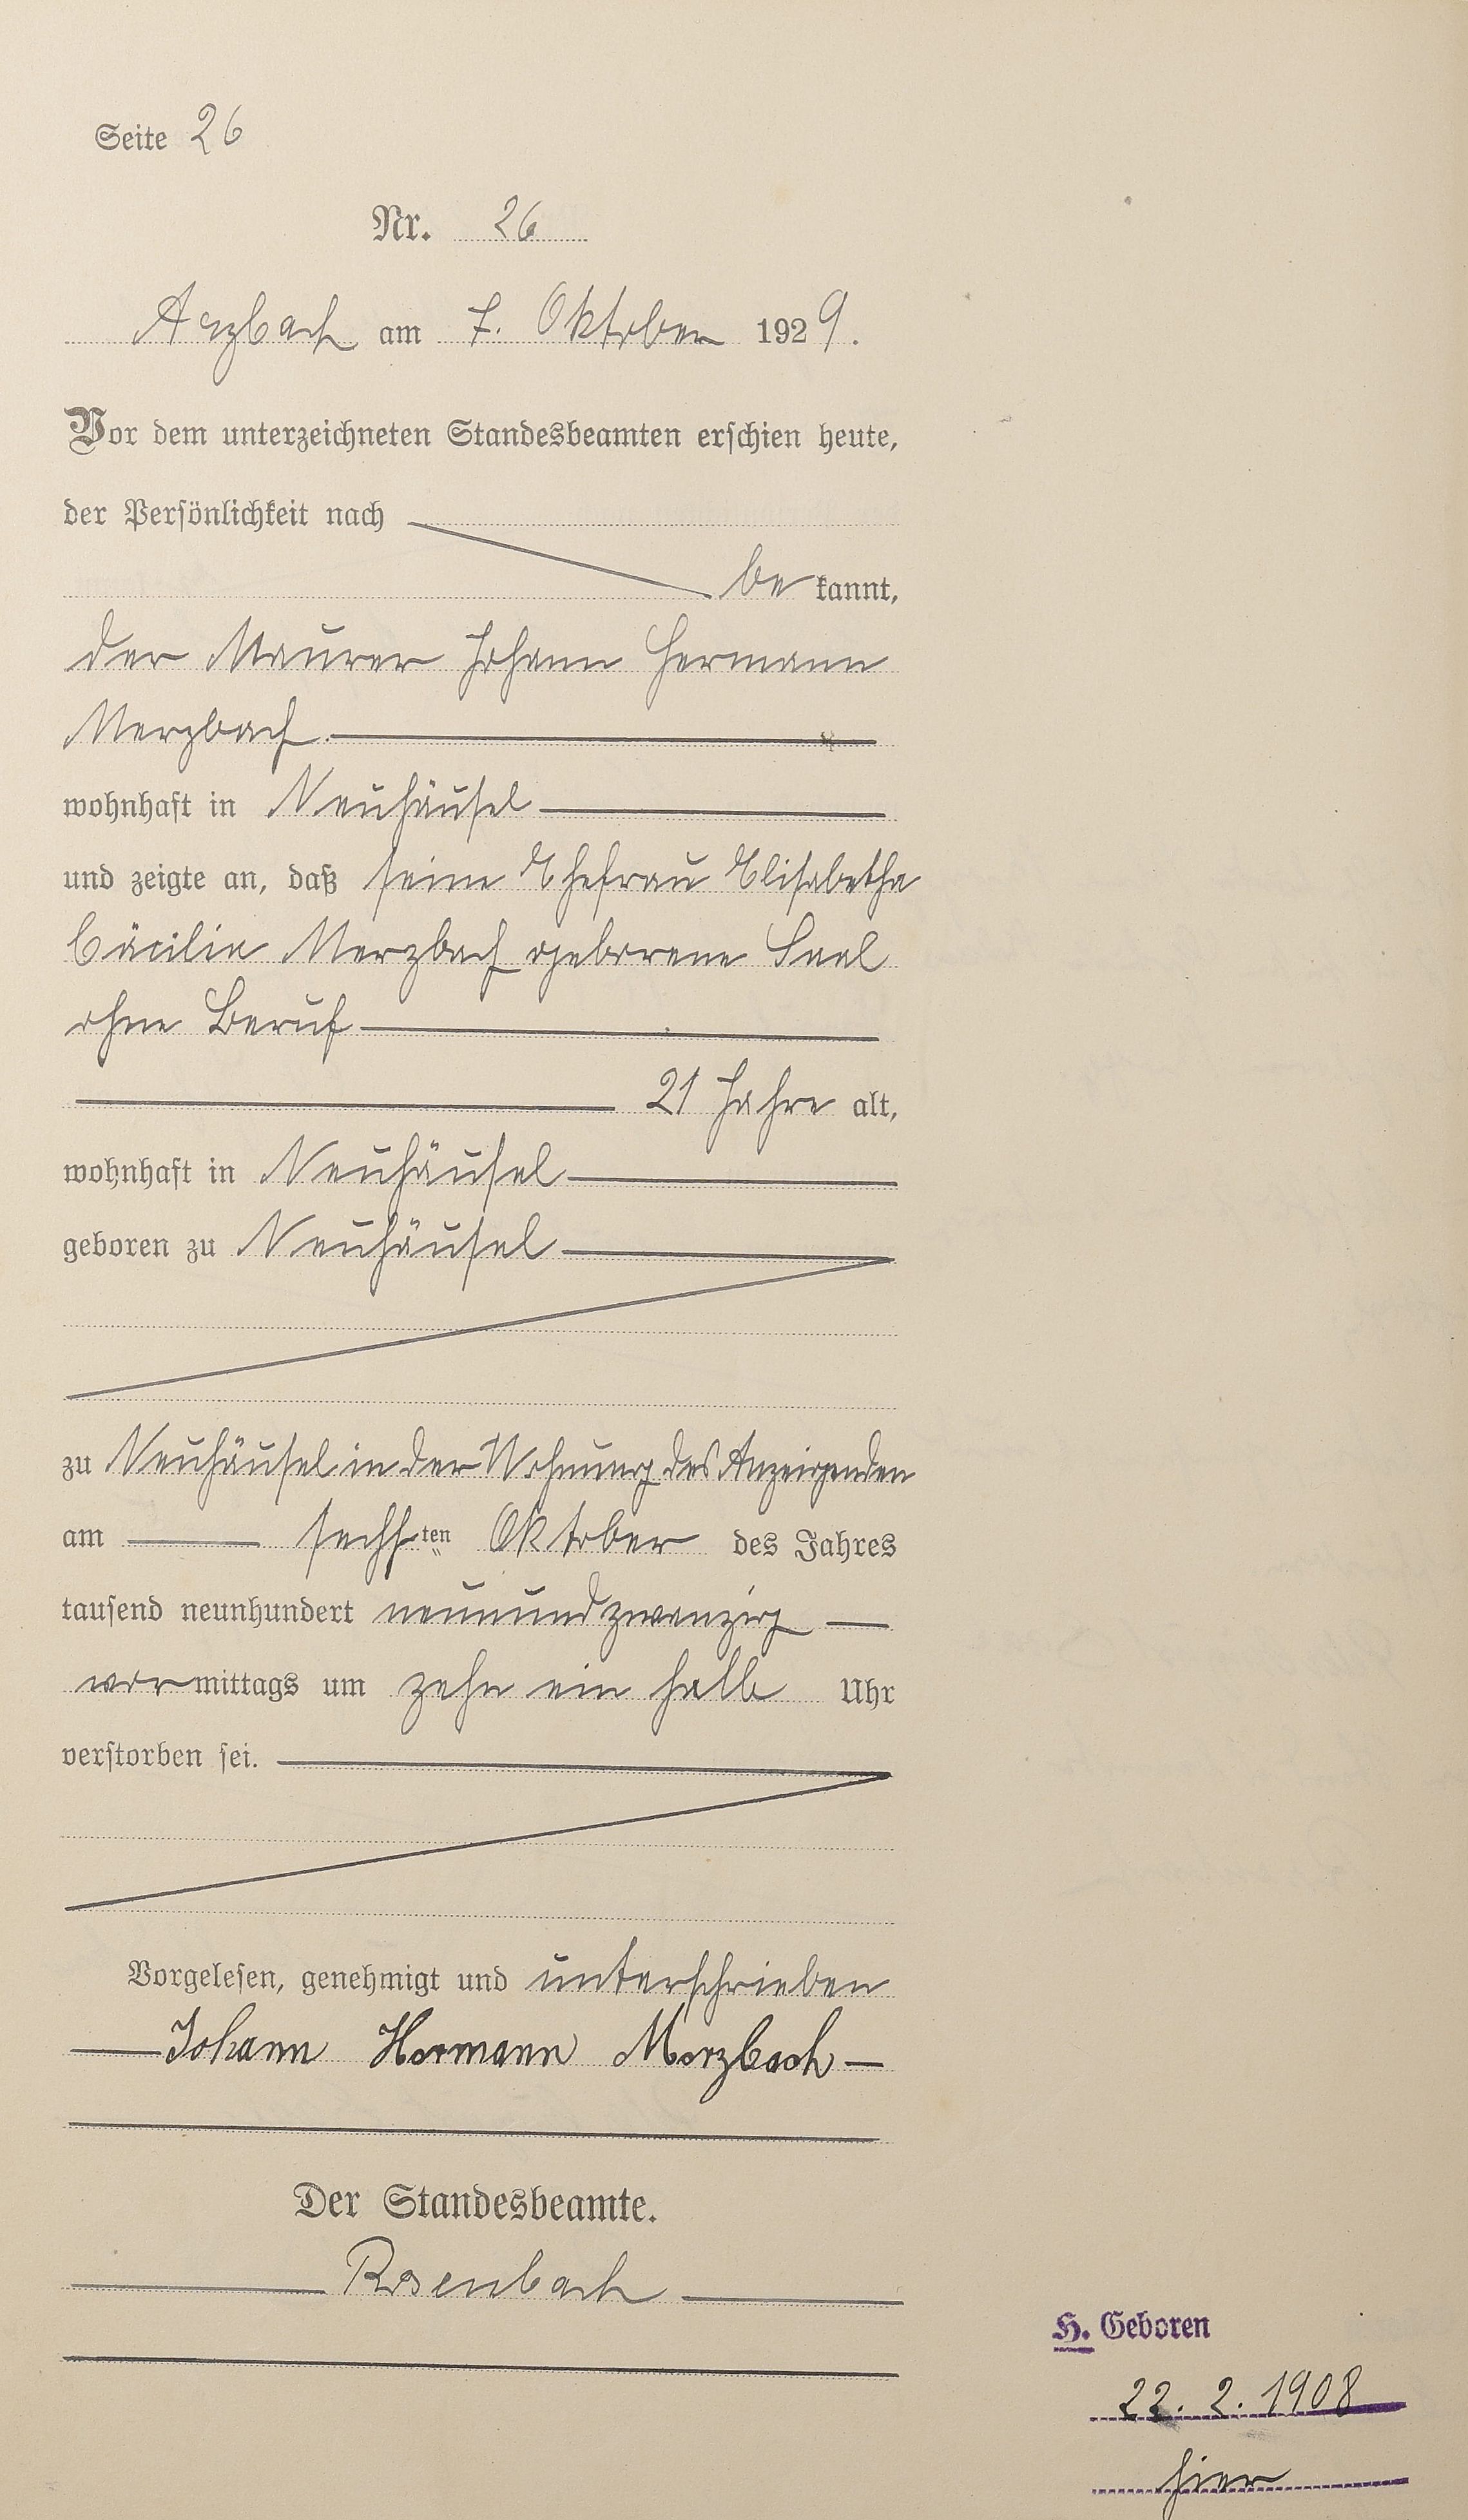 Seite 26
Nr. 26
Arzbach am 7. Oktober 1929.
Vor dem unterzeichneten Standesbeamten erschien heute,
der Persönlichkeit nach
be kannt,
der Maurer Johann Hermann
Merzbach.
wohnhaft in Neuhäusel
und zeigte an, daß seine Ehefrau Elisabetha
Cäcilia Merzbach geborene Saal
ohne Beruf
21 Jahre alt,
wohnhaft in Neuhäusel
geboren zu Neuhäusel
zu Neuhäusel in der Wohnung des Anzeigenden
am sechsten Oktober des Jahres
tausend neunhundert neunundzwanzig
vormittags um zehn ein halb Uhr
verstorben sei.
Vorgelesen, genehmigt und unterschrieben
Johann Hermann Merzbach
Der Standesbeamte.
Rosenbach
H. Geboren
22. 2. 1908
hier